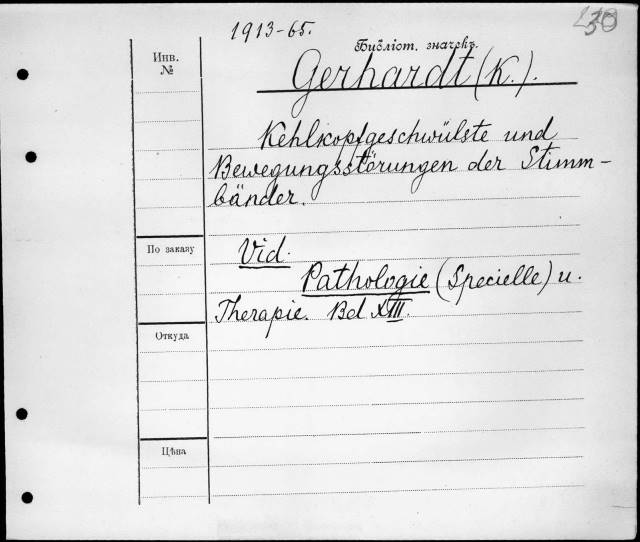 1913-65.
Библіот. значекъ.
Инв. №
Gerhardt (K.).
Kehlkopfgeschwülste und
Bewegungsstörungen der Stimm-
bänder.
По заказу
Vid.
Pathologie (Specielle) u.
Therapie. Bd XIII.
Откуда
Цѣна